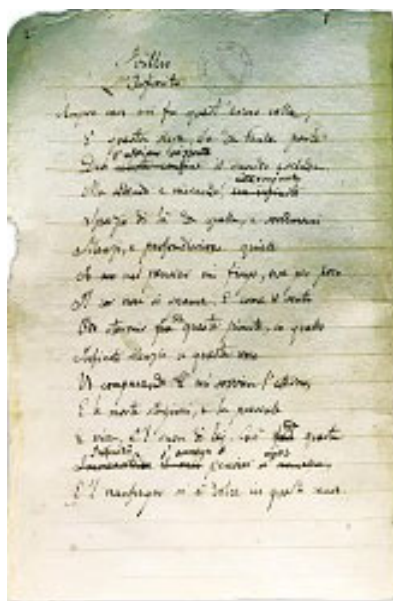 Idillio
L'Infinito
Sempre caro mi fu quest'ermo colle,
E questa siepe, che da tanta parte
De l'ultimo orizzonte il guardo esclude.
Ma sedendo e mirando, interminato
Spazio di là da quella, e sovrumani
Silenzi, e profondissima quiete
Io nel pensier mi fingo, ove per poco
Il cor non si spaura. E come il vento
Odo stormir fra queste piante, io quello
Infinito silenzio a questa voce
Vo comparando: E mi sovvien l'eterno,
E le morte stagioni, e la presente
E viva, e 'l suon di lei. Così questa
Immensitade il pensier mio
E 'l naufragar m'è dolce in questo mare.